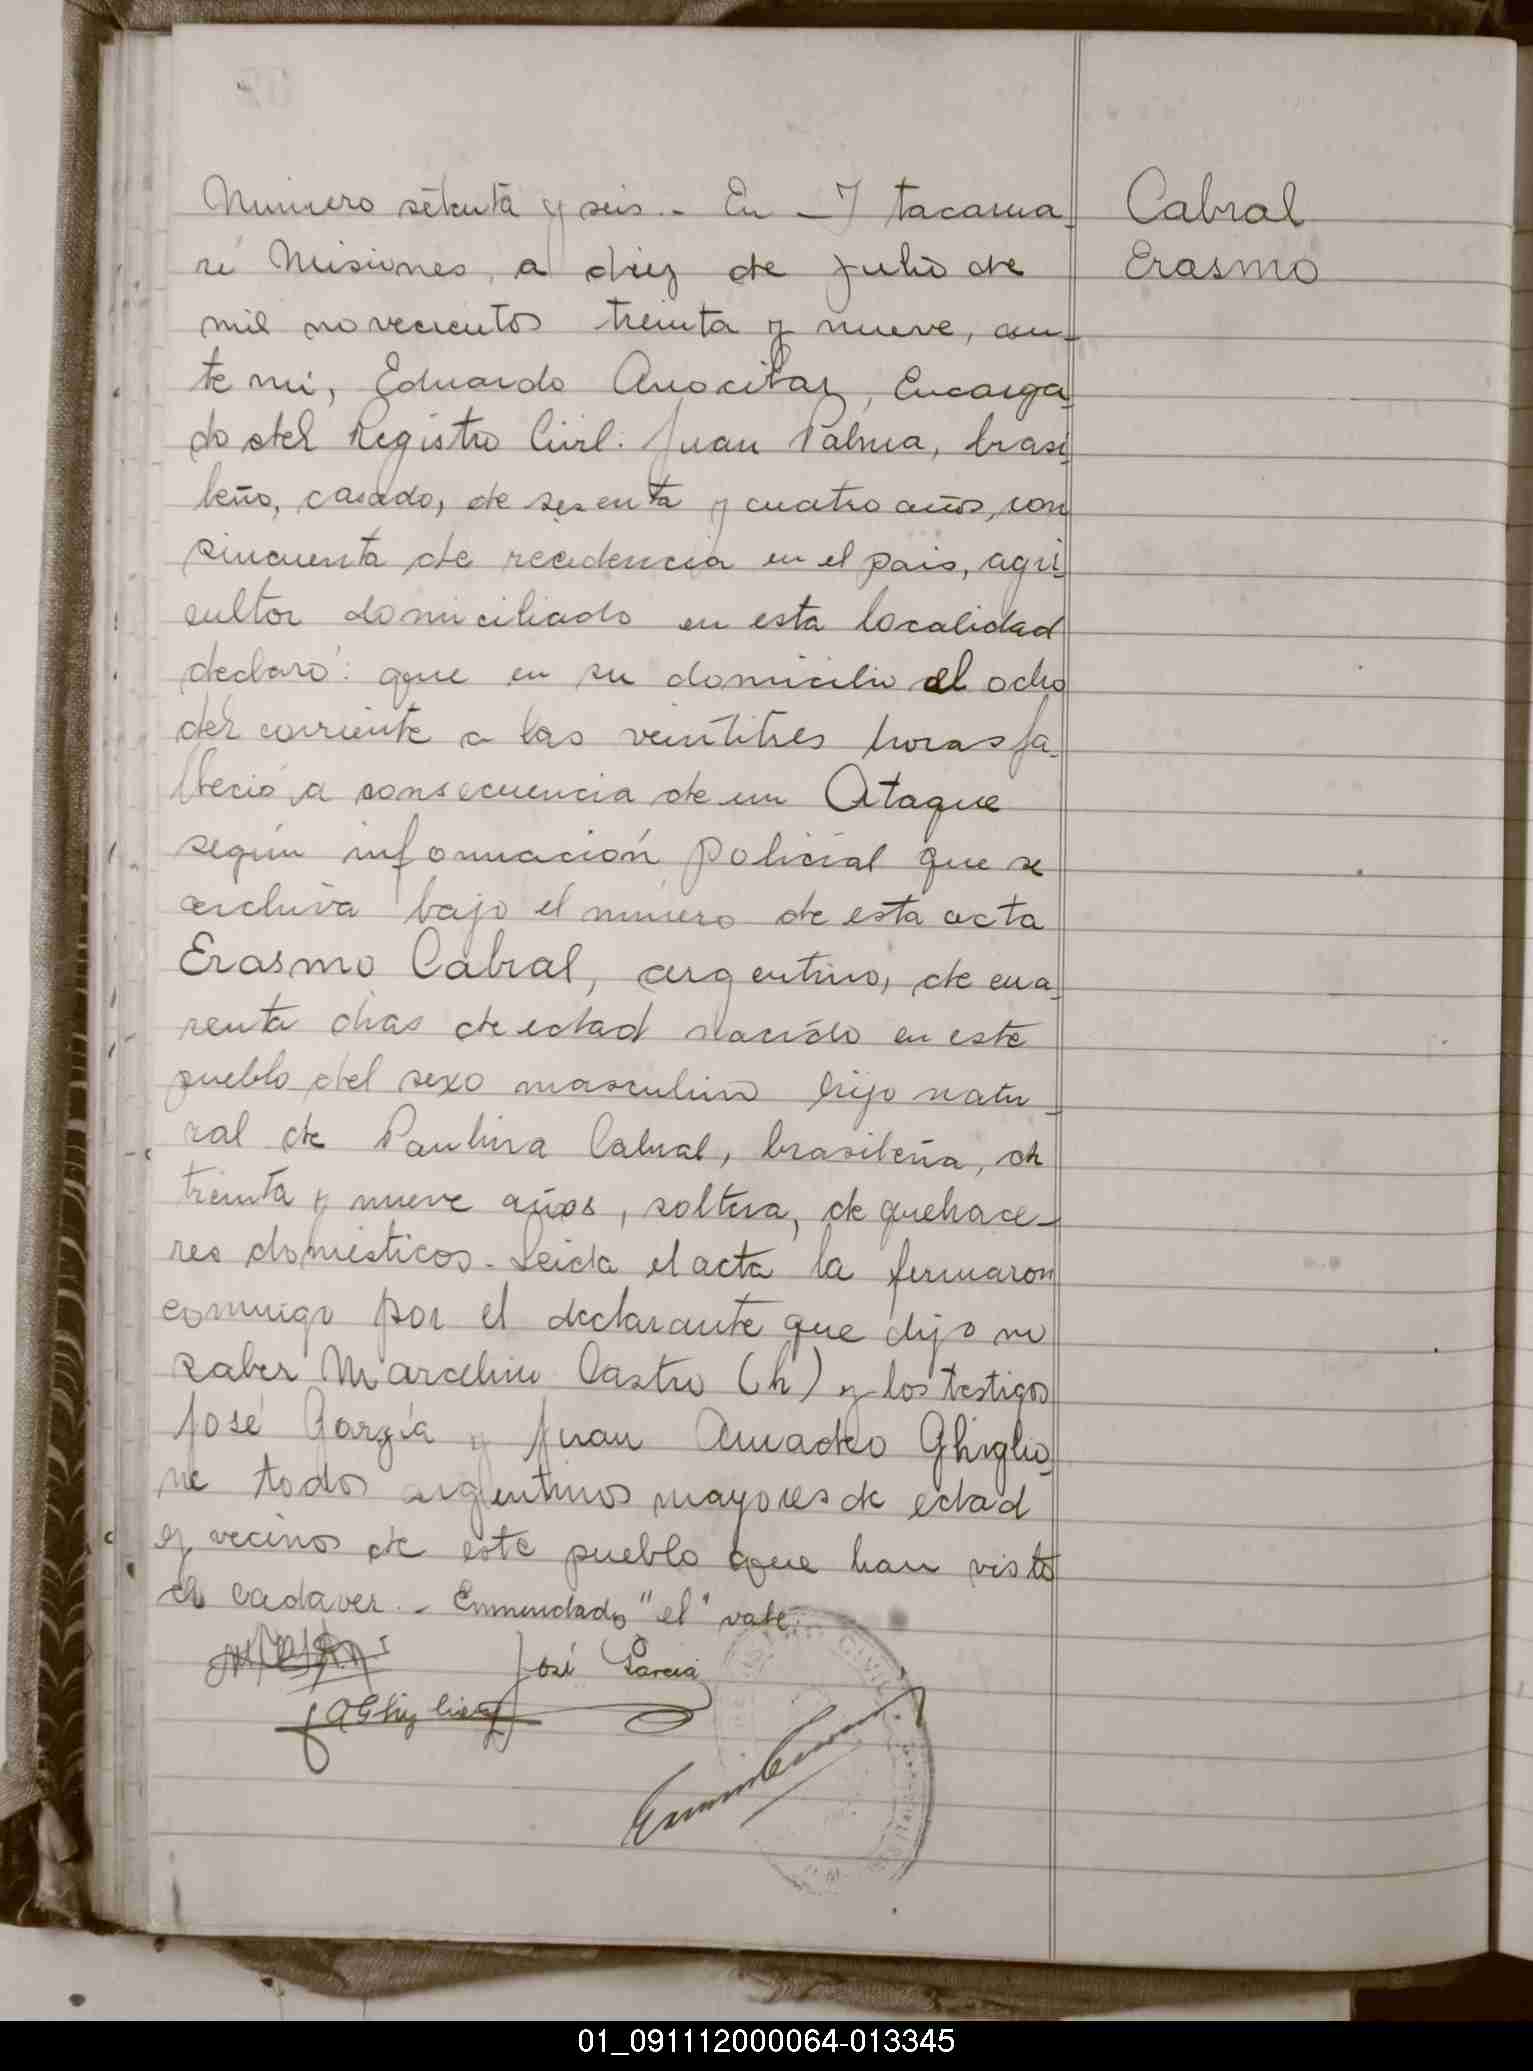 Número setenta y seis.- En - Itacarua-
ré Misiones, a diez de Julio de
mil novecientos treinta y nueve, an-
te mi, Eduardo Anocibar, Encarga-
do del Registro Civil: Juan Palma, brasi-
leño, casado, de sesenta y cuatro años, con
sincuenta de recidencia en el pais, agri-
cultor domiciliado en esta localidad
declaró: que en su domicilio el ocho
del corriente a las veintitres horas fa-
lleció a consecuencia de un Ataque
según información policial que se
archiva bajo el número de esta acta
Erasmo Cabral, argentino, de cua-
renta dias de edad nacido en este
pueblo del sexo masculino hijo natu-
ral de Paulina Cabral, brasileña, de
treinta y nueve años, soltera, de quehace-
res domésticos.- Leida el acta la firmaron
conmigo por el declarante que dijo no
saber Marcelino Castro (h) y los testigos
José Garzía y Juan Amadeo Ghiglio-
ne todos argentinos mayores de edad
y vecinos de este pueblo que han visto
el cadaver.- Enmendado "el" vale.
José Garcia
JAGhiglione
Cabral
Erasmo
01_091112000064-013345